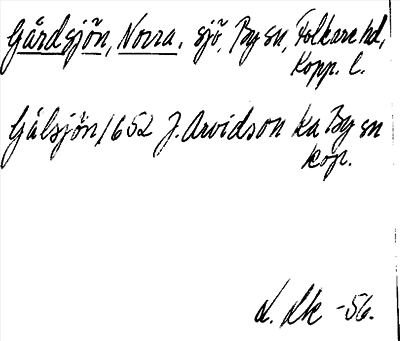 Gårdsjön, Norra, sjö, By sn, Folkare hd,
Kopp. l.
Gålsjön 1652 J. Arvidson ka By sn
kop.
-56.